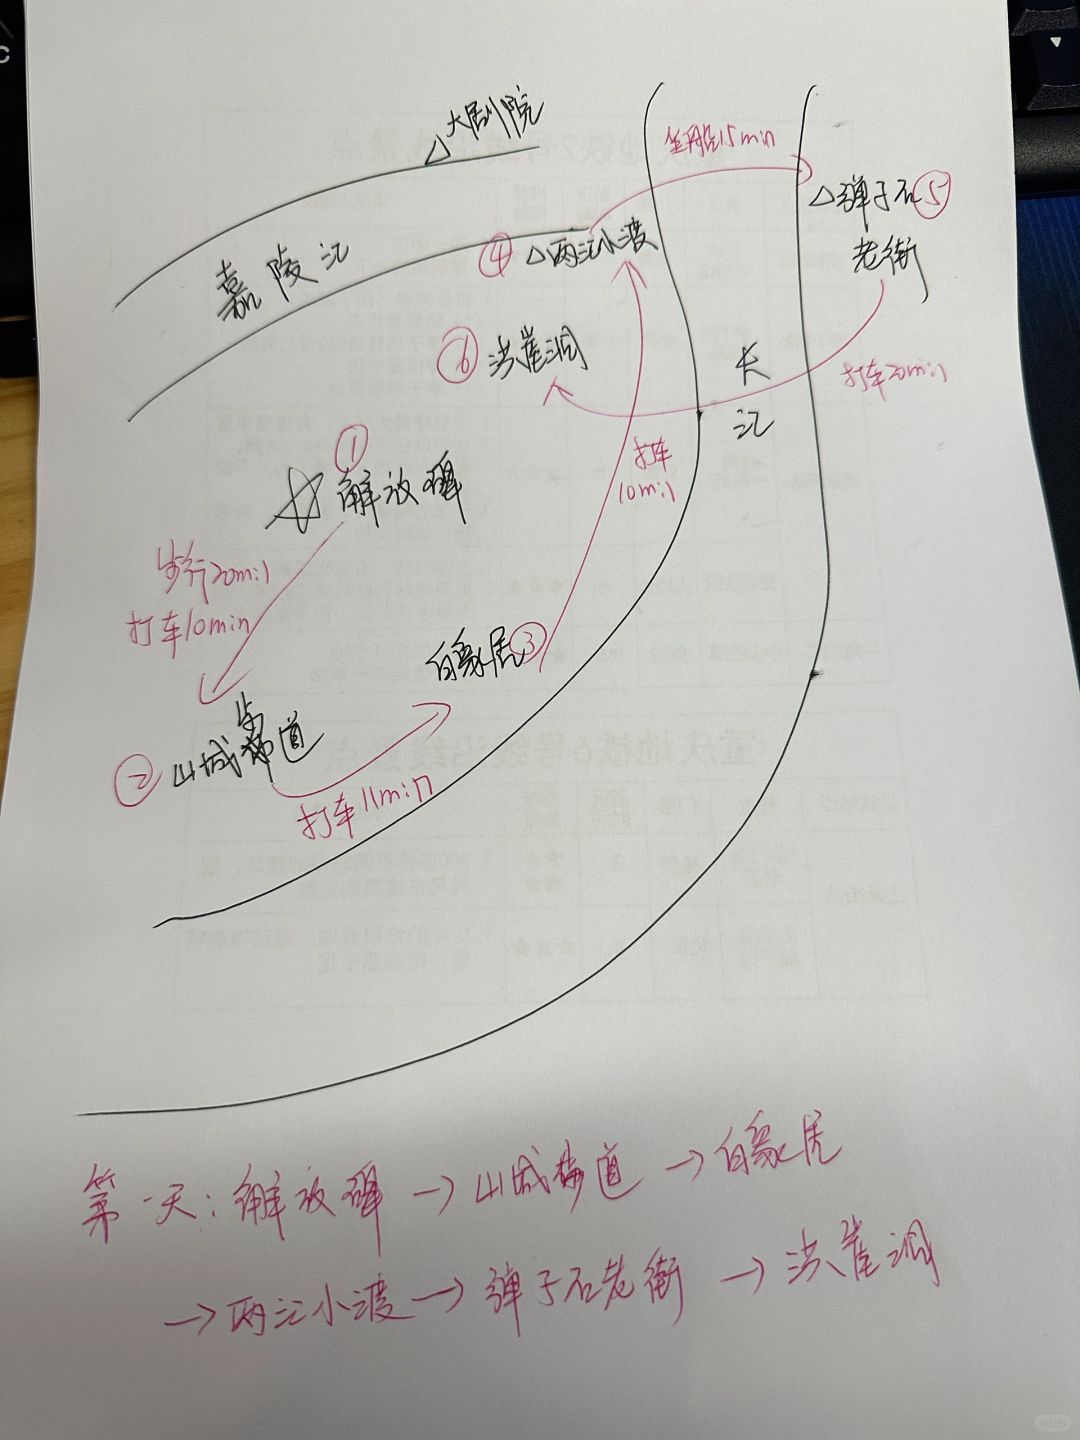 大剧院
坐船15min
△弹子石⑤
老街
嘉陵江
④△两江小渡
⑥洪崖洞
长
江
打车20min
打车
10min
①
☆解放碑
步行20min
打车10min
白象居③
②山城步道
打车11min
第一天：解放碑→山城步道→白象居
→两江小渡→弹子石老街→洪崖洞